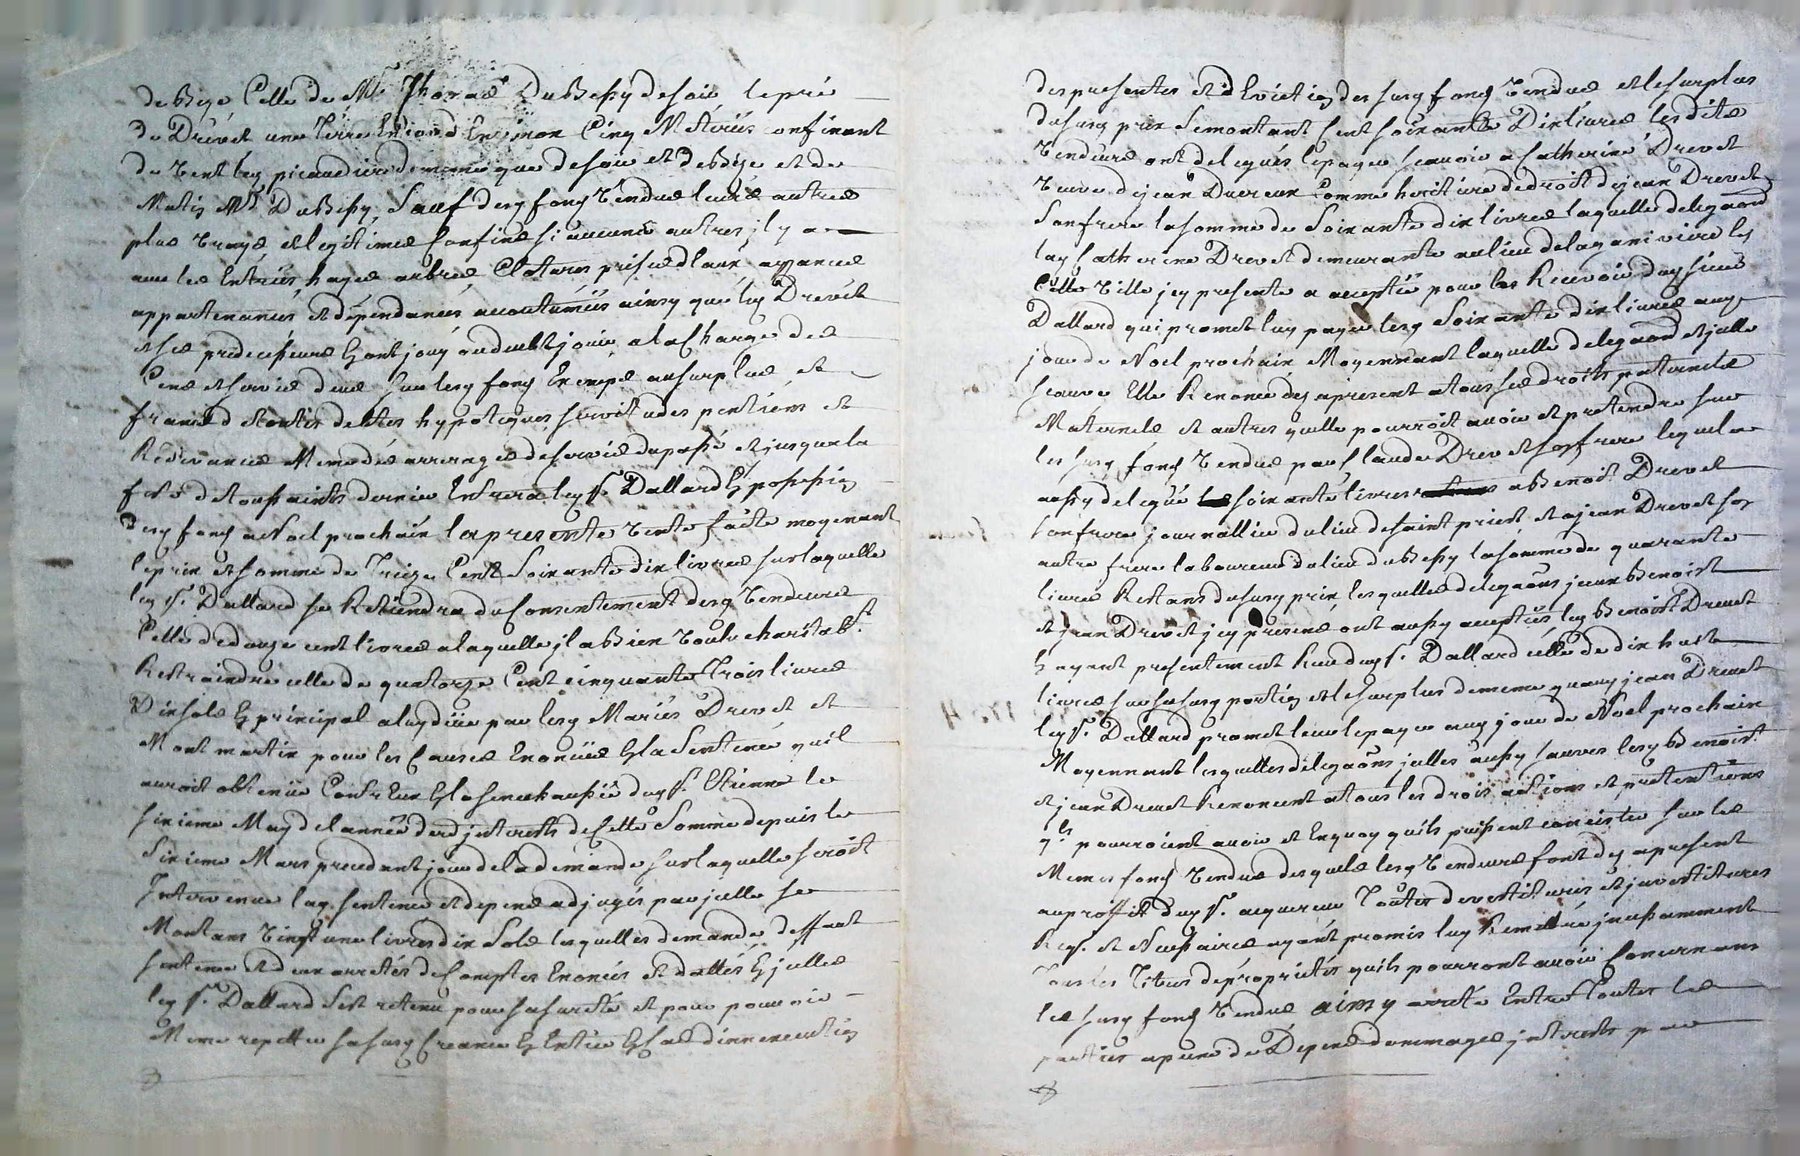 de bize Celle de Mr Thomas Dubessy de soir le pré
de Drevet une Terre Environ Cinq Meterées confinant
de vent les picaudiere demême que de soir et de bize et de
Matin Mr Dubessy, Sauf desd fond vendus leurs autres
plus vrays et legitimes confins si aucuns autres jl y a
avec les Entrées, hayes arbres Clotures prises d'eaux, aysances
appartenances et dépendances accoutumées ainsy que led Drevet
et ses predecesseurs En ont jouy ou deubt jouir, a la Charge des
Cens et servis deus sur lesd fond Exempt au surplus, et
franc d et toutes debtes hypoteques servitudes pentions et
Redevances Meme des arrerages de servis du passé et jusqua la
fete de toussaints dernier Entrera led Sr Dallard En possession
desd fond a Noel prochain la presente vente faite moyenant
le prix et somme de Treize Cent Soixante dix livres sur laquelle
led Sr Dallard se Retiendra du Consentement desd vendeurs
Celle de douze cent livres a laquelle jl a bien voulu charitabt
Restraindre celle de quatorze Cent cinquante Trois livres
Dix sols En principal a luy düe par lesd Mariés Drevet et
Montmartin pour les Causes Enoncées En la Sentence quil
auroit obtenüe Contr Eux En la senechaussée dud St Etienne le
sixieme May de l'année der jnterests de cette Somme depuis le
Sixieme Mars precedant jour de la demande sur laquelle seroit
Intervenue lad. sentence et depens adjugés par jcelle se
Montans vingt une livres dix Sols lesquelles demande deffaut
sentence et deux arretés de Comptes Enoncés et dattés En jcelle
led Sr Dallard s'est retenu pour sa sureté et pour pouvoir
Meme repetter sa susd Creance En Entier En cas d'innexecution
des presentes et d Eviction des susd fond vendus et le surplus
du susd prix se montant Cent soixante Dix livres lesdits
vendeurs ont delegués le payer scavoir a Catherine Drevet
veuve de jean Duvreux Comme heritiere de droit de jean Drevet
son frere la somme de Soixante dix livres laquelle delegaon
lad Catherine Drevet demeurante au lieu de la
Celle ville jcy presente a acceptée pour les Recevoir dud sieur
Dallard qui promet luy payer lesd Soixante dix livres aud
jour de Noel prochain Moyennant laquelle delegaon et jcelle
sauve Elle Renonce des apresent a tous ses droits paternels
Maternels et autres quelle pourroit avoir et pretendre sur
les susd fond vendus par Claude Drevet son frere lequel a
aussy delegué soixante livres a Benoit Drevet
son frere journallier du lieu de saint priest et a jean Drevet son
autre frere laboureur du lieu dubessy la somme de quarante
livres Restans du susd prix lesquelles delegaons jceux Benoist
et jean Drevet jcy presens ont aussy acceptées led Benoist Drevet
En ayant presentement Receu dud Sr Dallard celle de dix huit
livres sur sa susd portion et le surplus de meme quaud jean Drevet
led Sr Dallard promet leur le payer aud jour de Noel prochain
Moyennant lesquelles delegaons jcelles aussy sauves lesd Benoist
et jean Drevet Renoncent a tous les droits actions et pretentions
qls pourroient avoir et Enquoy quils puissent concister sur les
Memes fond vendus desquels lesd vendeurs sont des apresent
au proffit dud Sr acquereur Toutes devestitures et jnvestitures
Reqs et Necessaires ayant promis luy Remettre jncessamment
Tous les Titres de proprietés quils pourront avoir Concernans
les susd fond vendus ainsy arreté Entre Toutes les
parties a peine de Depens dommages jnterests par